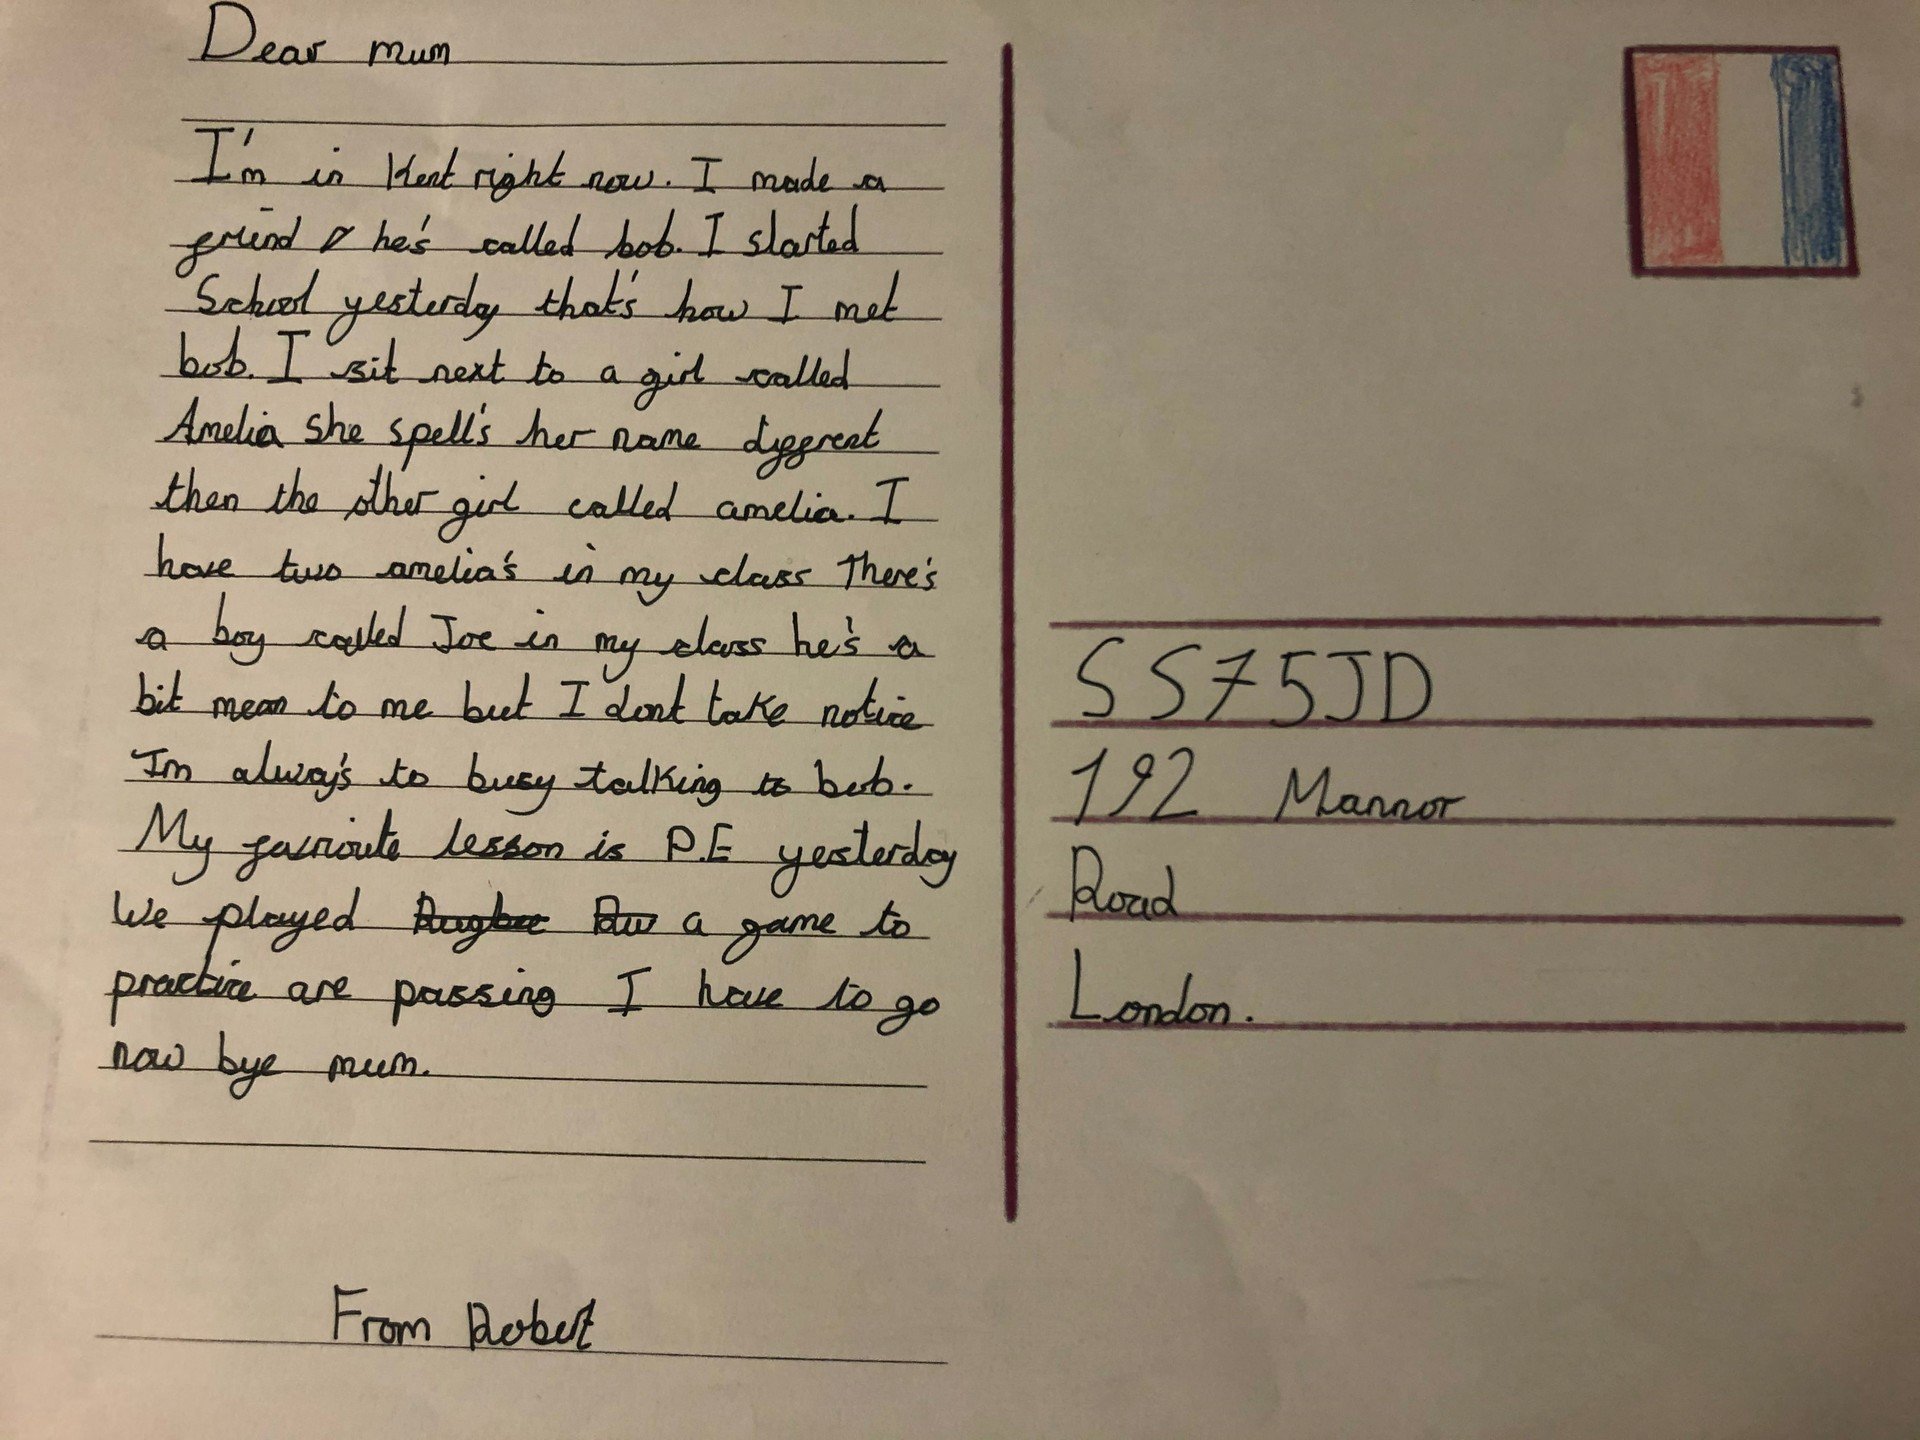 Dear mum
I'm in Kent right now. I made a
freind he's called bob. I started
School yesterday that's how I met
bob. I sit next to a girl called
Amelia She spell's her name diffrent
then the other girl called amelia. I
have two amelia's in my class There's
a boy called Joe in my class he's a
bit mean to me but I dont take notice
Im alway's to busy talking to bob.
My favrioute lesson is P.E yesterday
We played a game to
practice are passing I have to go
now bye mum.
From Robert
SS75JD
192 Mannor
Road
London.